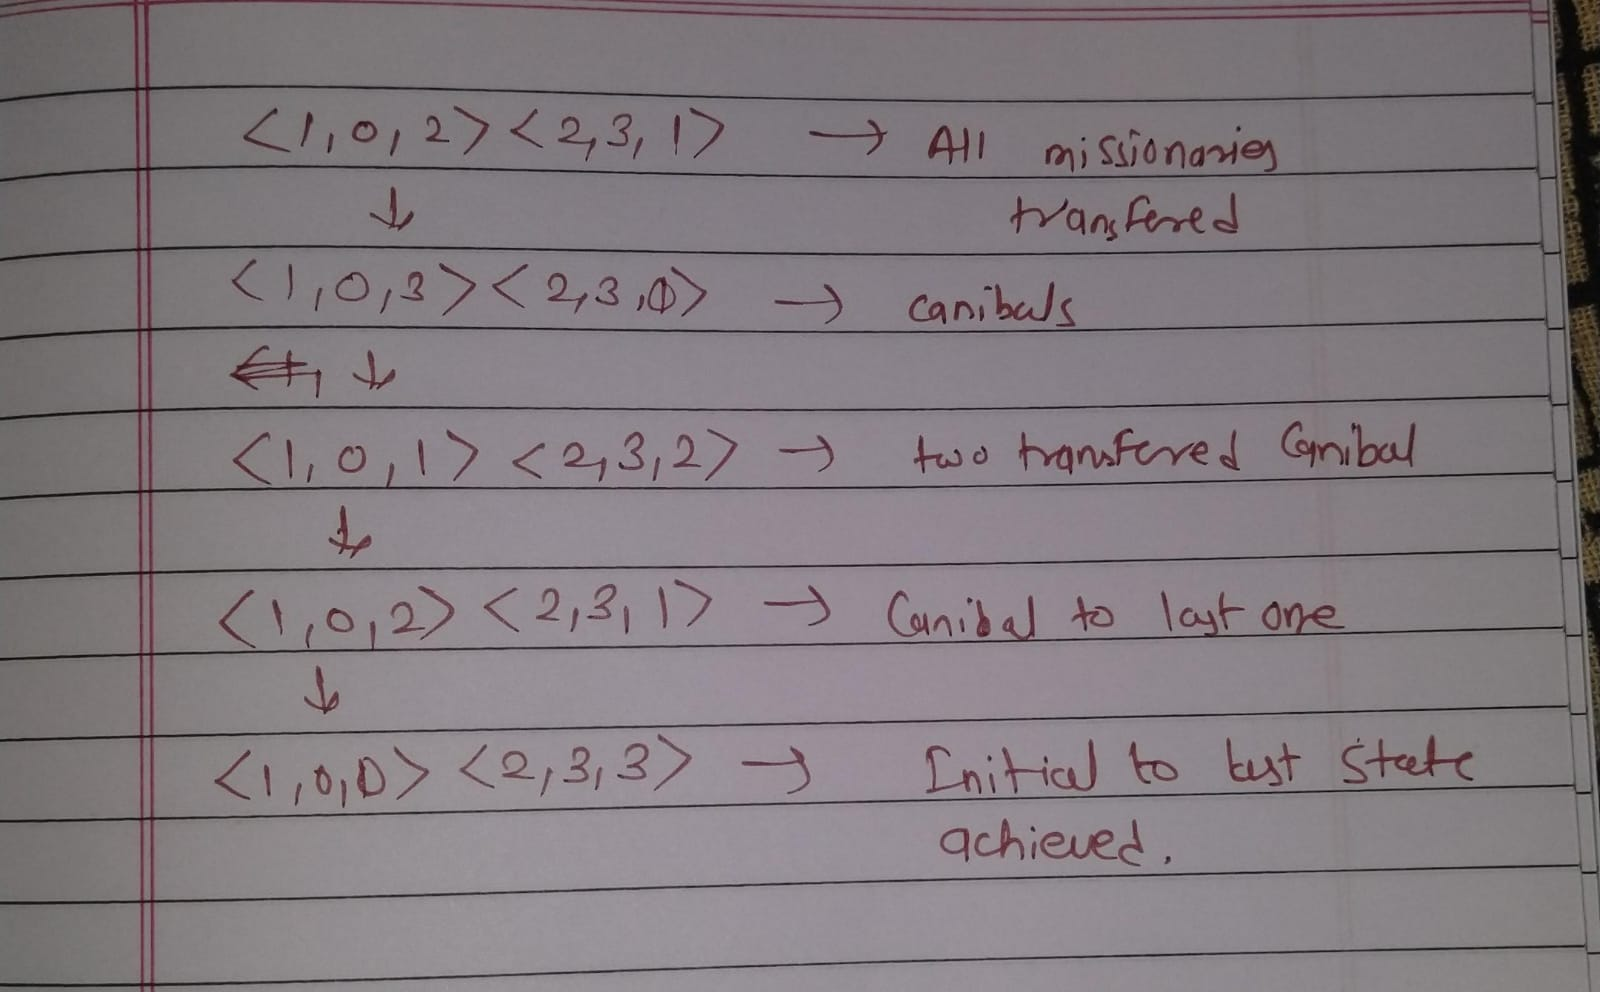 <1,0,2> <2,3,1> → All missionaries
↓ transfered
<1,0,3> <2,3,0> → canibals
↓
<1,0,1> <2,3,2> → two transfered Canibal
↓
<1,0,2> <2,3,1> → Canibal to last one
↓
<1,0,0> <2,3,3> → Initial to last state
achieved.